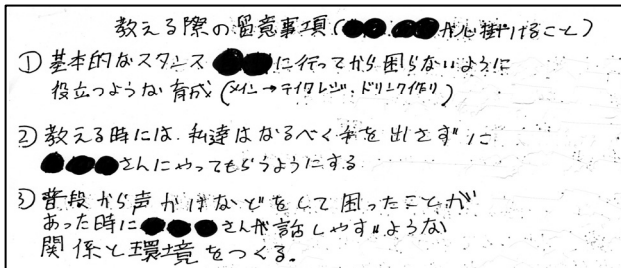 教える際の留意事項(●●.●●が心掛けること)
① 基本的なスタンス ●●に行ってから困らないように
役立つような育成 (メイン→テイクレジ.ドリンク作り)
② 教える時には.私達はなるべく手を出さずに
●●●さんにやってもらうようにする
③ 普段から声かけなどをして困ったことが
あった時に●●●さんが話しやすいような
関係と環境をつくる.